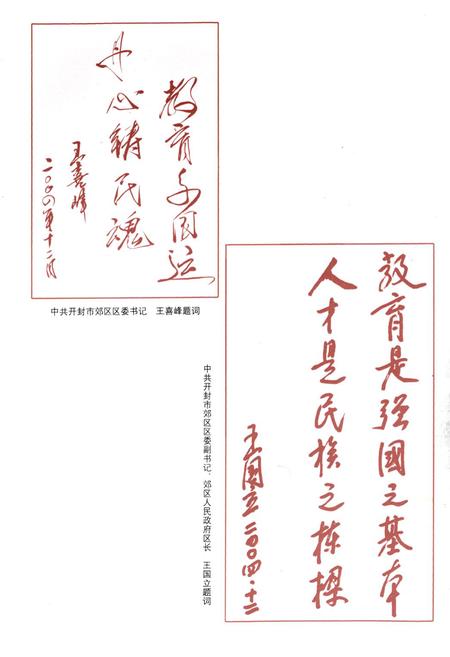 教育千国运
丹心铸民魂
王喜峰
二〇〇四年十二月
中共开封市郊区区委书记　王喜峰题词
教育是强國之基本
人才是民族之栋樑
王国立二〇〇四·十二
中共开封市郊区区委副书记、郊区人民政府区长　王国立题词